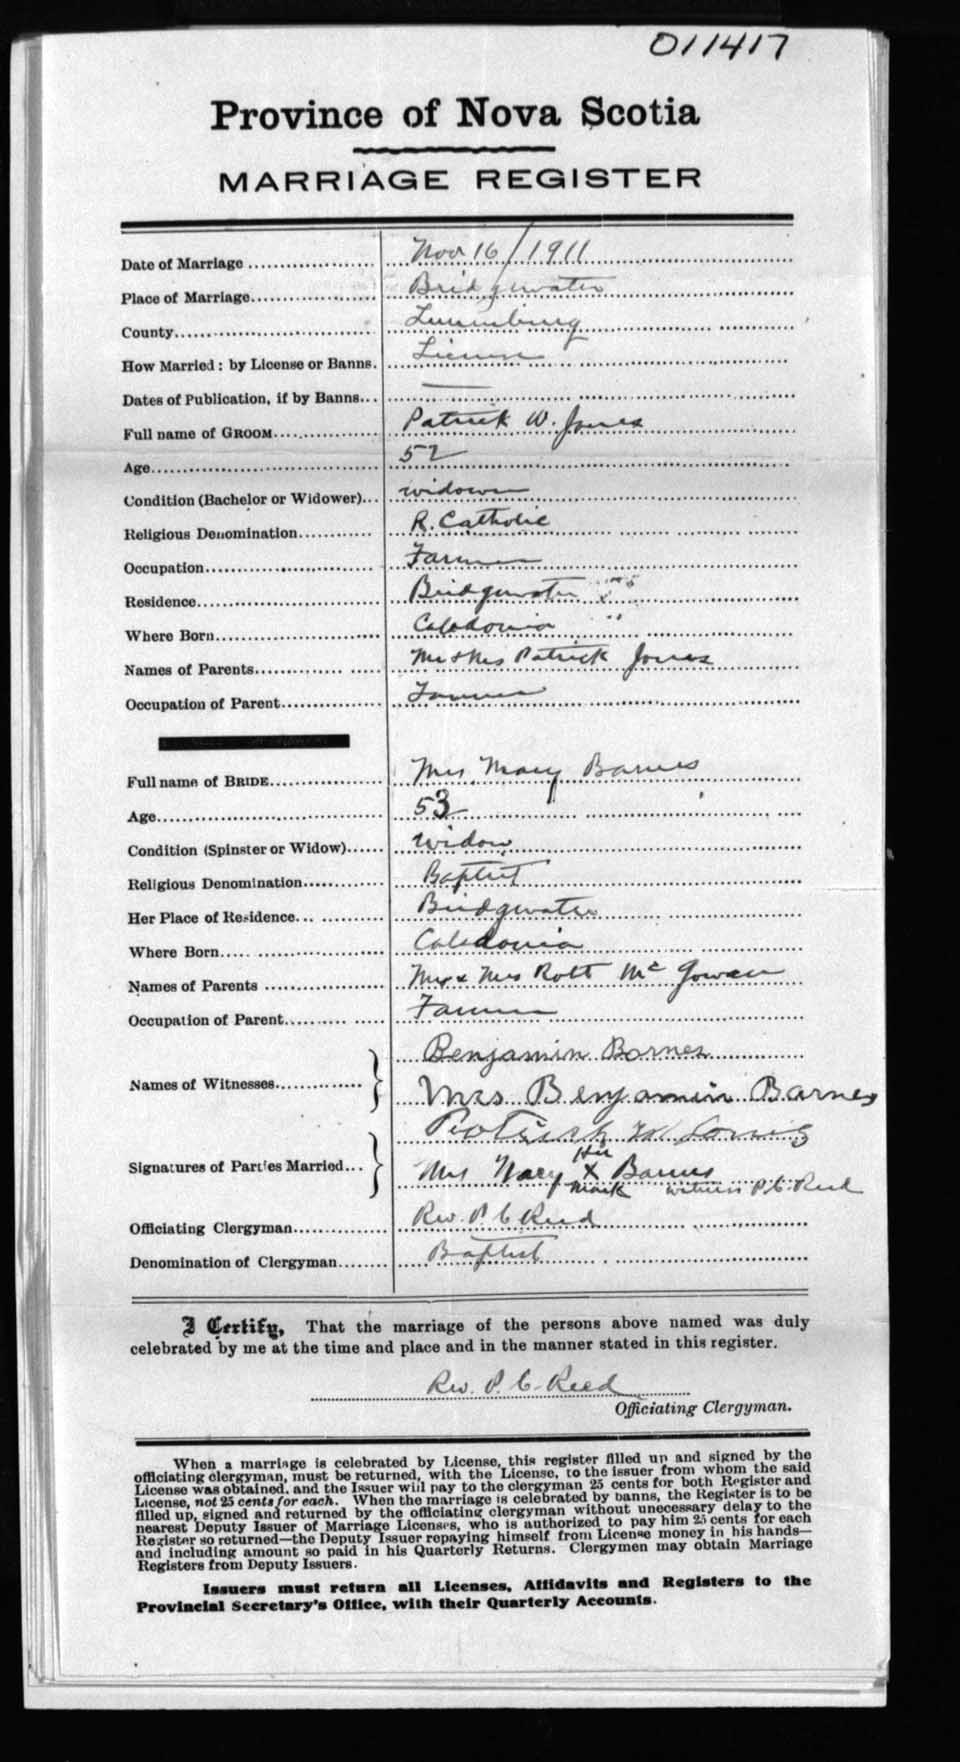 011417
Province of Nova Scotia
MARRIAGE REGISTER
Date of Marriage Nov 16/1911
Place of Marriage Bridgewater
County Lunenburg
How Married: by License or Banns. License
Dates of Publication, if by Banns —
Full name of GROOM Patrick W. Jones
Age 52
Condition (Bachelor or Widower) widower
Religious Denomination R. Catholic
Occupation Farmer
Residence Bridgewater
Where Born Caledonia "
Names of Parents Mr & Mrs Patrick Jones
Occupation of Parent Farmer
Full name of BRIDE Mrs Mary Barnes
Age 53
Condition (Spinster or Widow) Widow
Religious Denomination Baptist
Her Place of Residence Bridgewater
Where Born Caledonia
Names of Parents Mr & Mrs Robt McGowan
Occupation of Parent Farmer
Names of Witnesses Benjamin Barnes
Mrs Benjamin Barnes
Signatures of Parties Married Patrick W Jones
Mrs Mary Her X Mark Barnes witness P. C. Reed
Officiating Clergyman Rev. P. C. Reed
Denomination of Clergyman Baptist
I Certify, That the marriage of the persons above named was duly
celebrated by me at the time and place and in the manner stated in this register.
Rev. P. C. Reed
Officiating Clergyman.
When a marriage is celebrated by License, this register filled up and signed by the
officiating clergyman, must be returned, with the License, to the issuer from whom the said
License was obtained, and the Issuer will pay to the clergyman 25 cents for both Register and
License, not 25 cents for each. When the marriage is celebrated by banns, the Register is to be
filled up, signed and returned by the officiating clergyman without unecessary delay to the
nearest Deputy Issuer of Marriage Licenses, who is authorized to pay him 25 cents for each
Register so returned—the Deputy Issuer repaying himself from License money in his hands—
and including amount so paid in his Quarterly Returns. Clergymen may obtain Marriage
Registers from Deputy Issuers.
Issuers must return all Licenses, Affidavits and Registers to the
Provincial Secretary's Office, with their Quarterly Accounts.